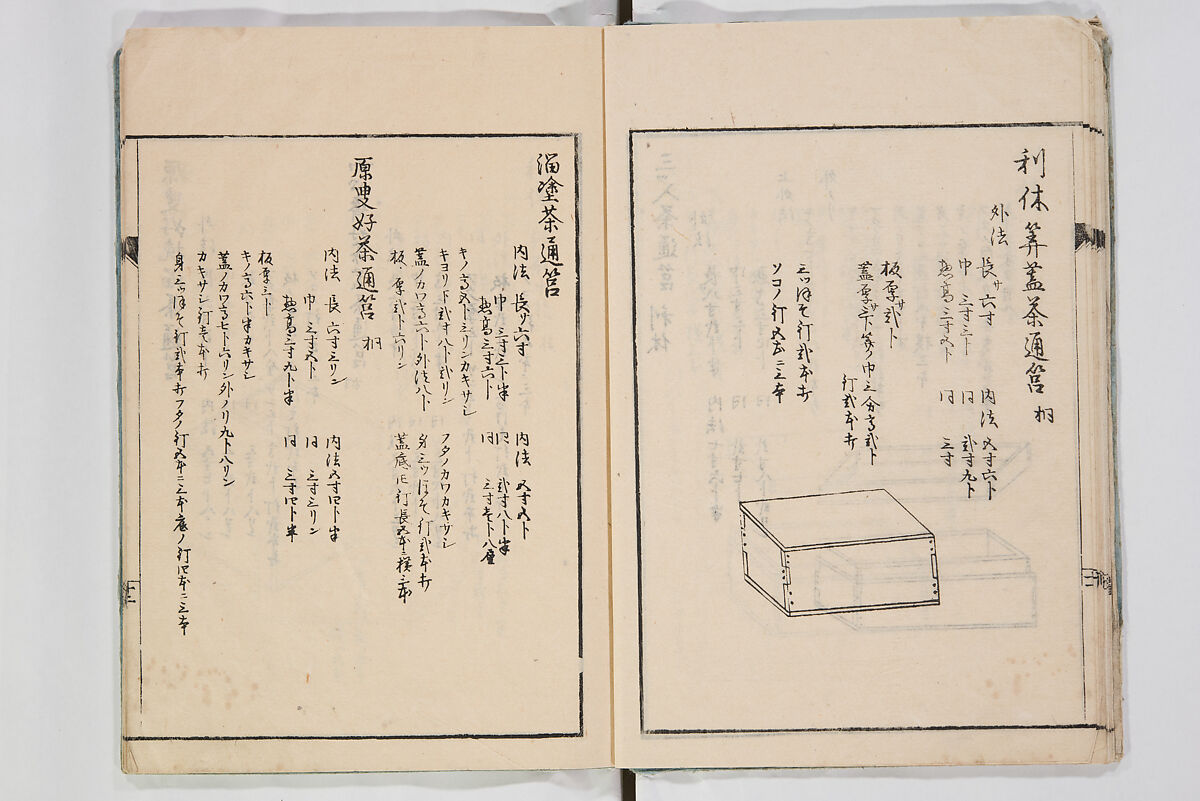 利休筭蓋茶通筥 桐
外法 長サ六寸 内法 五寸六卜
巾 三寸三卜 同 弐寸九卜
惣高三寸五卜 同 三寸
板厚サ弐卜
蓋厚サ三卜 巾三分高弐卜
釘弐本ツヽ
三ツほそ釘弐本ツヽ
ソコノ釘五本ニ三本
溜塗茶通筥
内法 長サ六寸 内法 五寸五卜
巾三寸三卜半 同 弐寸八卜半
惣高三寸六卜 同 三寸壱卜八厘
キノ高五卜三リンカキサシ フタノカワカキサシ
キヨリ下弐寸八卜弐リン 身三ツほそ釘弐本ツヽ
蓋ノカワ高六卜外法八卜 蓋底に釘長五本ニ横三本
板厚弐卜六リン
原叟好茶通筥 桐
内法 長 六寸三リン 内法五寸四卜半
巾 三寸五卜 同 三寸三リン
惣高三寸九卜半 同 三寸四卜半
板厚三卜
キノ高六卜半カキサシ
蓋ノカワ高七卜六リン外ノリ九卜八リン
カキサシ釘壱本ツヽ
身三ツほそ釘弐本ツヽフタノ釘五本ニ三本底ノ釘四本ニ三本